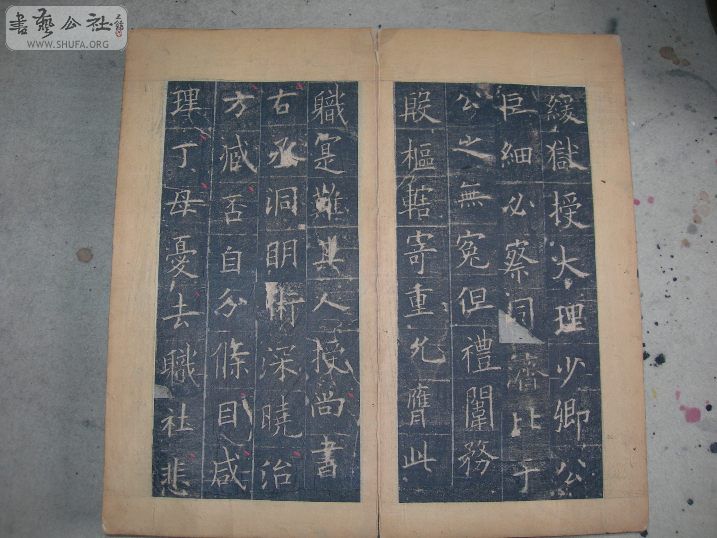 書藝公社
WWW.SHUFA.ORG
緩獄授大理少卿公
巨細必察洞濟比于
公之無冤但禮闈務
殷樞轄寄重允膺此
職寔難其人授尚書
右丞洞明術深曉治
方臧否自分條目咸
理丁母憂去職社悲